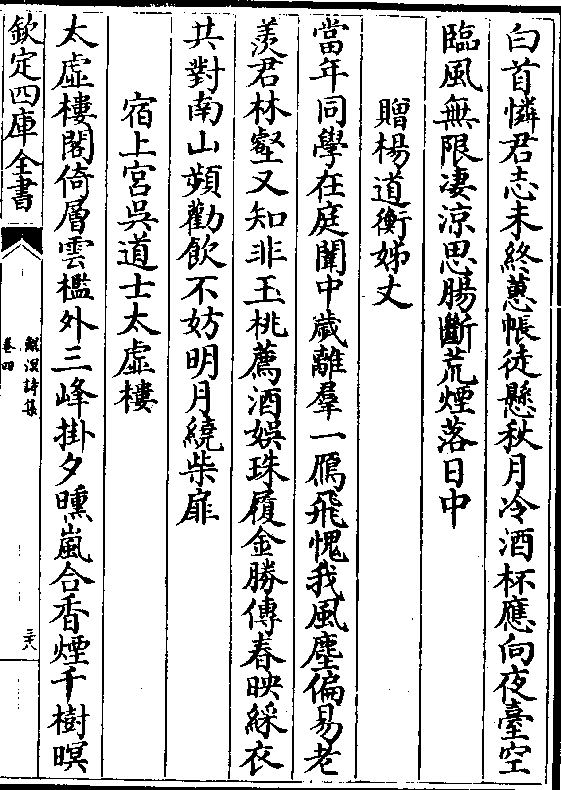 白首憐君志未終蕙帳徒懸秋月冷酒杯應向夜臺空
臨風無限凄涼思腸斷荒煙落日中
贈楊道衡姊丈
當年同學在庭闈中歲離羣一鴈飛愧我風塵偏易老
羨君林壑又知非玉桃薦酒娛珠履金勝傳春映綵衣
共對南山頻勸飲不妨明月繞柴扉
宿上宮吳道士太虛樓
太虛樓閣倚層雲檻外三峰掛夕曛嵐合香煙千樹暝
欽定四庫全書
鯤溟詩集
卷四
二十八